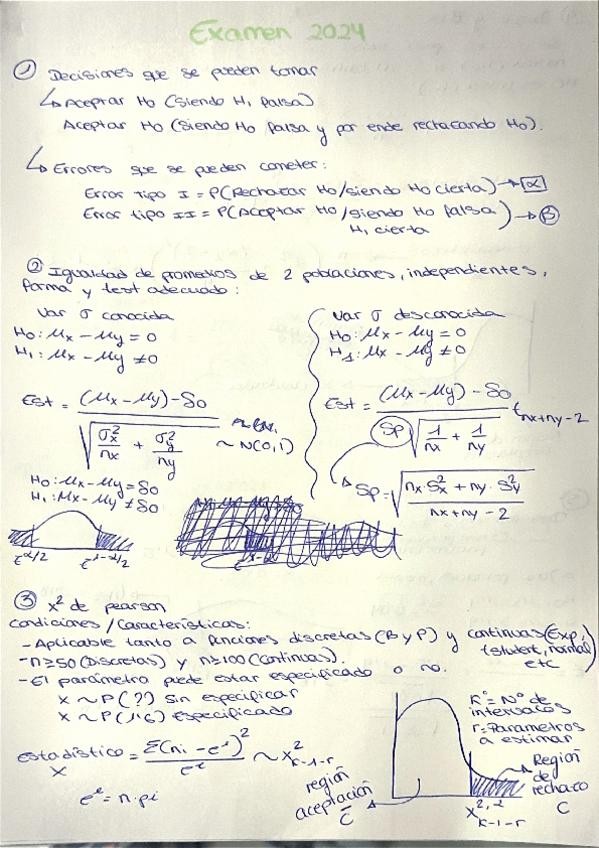 Examen 2024
① Decisiones que se pueden tomar
↳ Aceptar Ho (siendo H1 falsa)
Aceptar Ho (siendo Ho falsa y por ende rechazando Ho).
↳ Errores que se pueden cometer:
Error tipo I = P(Rechazar Ho/siendo Ho cierta) → α
Error tipo II = P(Aceptar Ho/siendo Ho falsa) → β
H1 cierta
② Igualdad de promedios de 2 poblaciones, independientes,
forma y test adecuado:
Var σ conocida
Ho: μx - μy = 0
H1: μx - μy ≠ 0
Est = (μx - μy) - δo / √(σx²/nx + σy²/ny) ~ N(0,1)
Ho: μx - μy = δo
H1: μx - μy ≠ δo
z α/2 z 1-α/2
Var σ desconocida
Ho: μx - μy = 0
H1: μx - μy ≠ 0
Est = (μx - μy) - δo / Sp √(1/nx + 1/ny) t nx+ny-2
Sp = √(nx · Sx² + ny · Sy² / nx + ny - 2)
③ x² de pearson
condiciones / características:
- Aplicable tanto a funciones discretas (B y P) y continuas (Exp,
tstudent, normal
etc)
- n≥50 (Discretas) y n≥100 (continuas).
- El parámetro puede estar especificado o no.
X ~ P(??) sin especificar
X ~ P(1'6) Especificado
estadístico = Σ(ni - ei)² / ei ~ X² k-1-r
X
ei = n · pi
K = Nº de
intervalos
r = Parametros
a estimar
región
aceptación
C̄
Región
de
rechazo
C
X² k-1-r